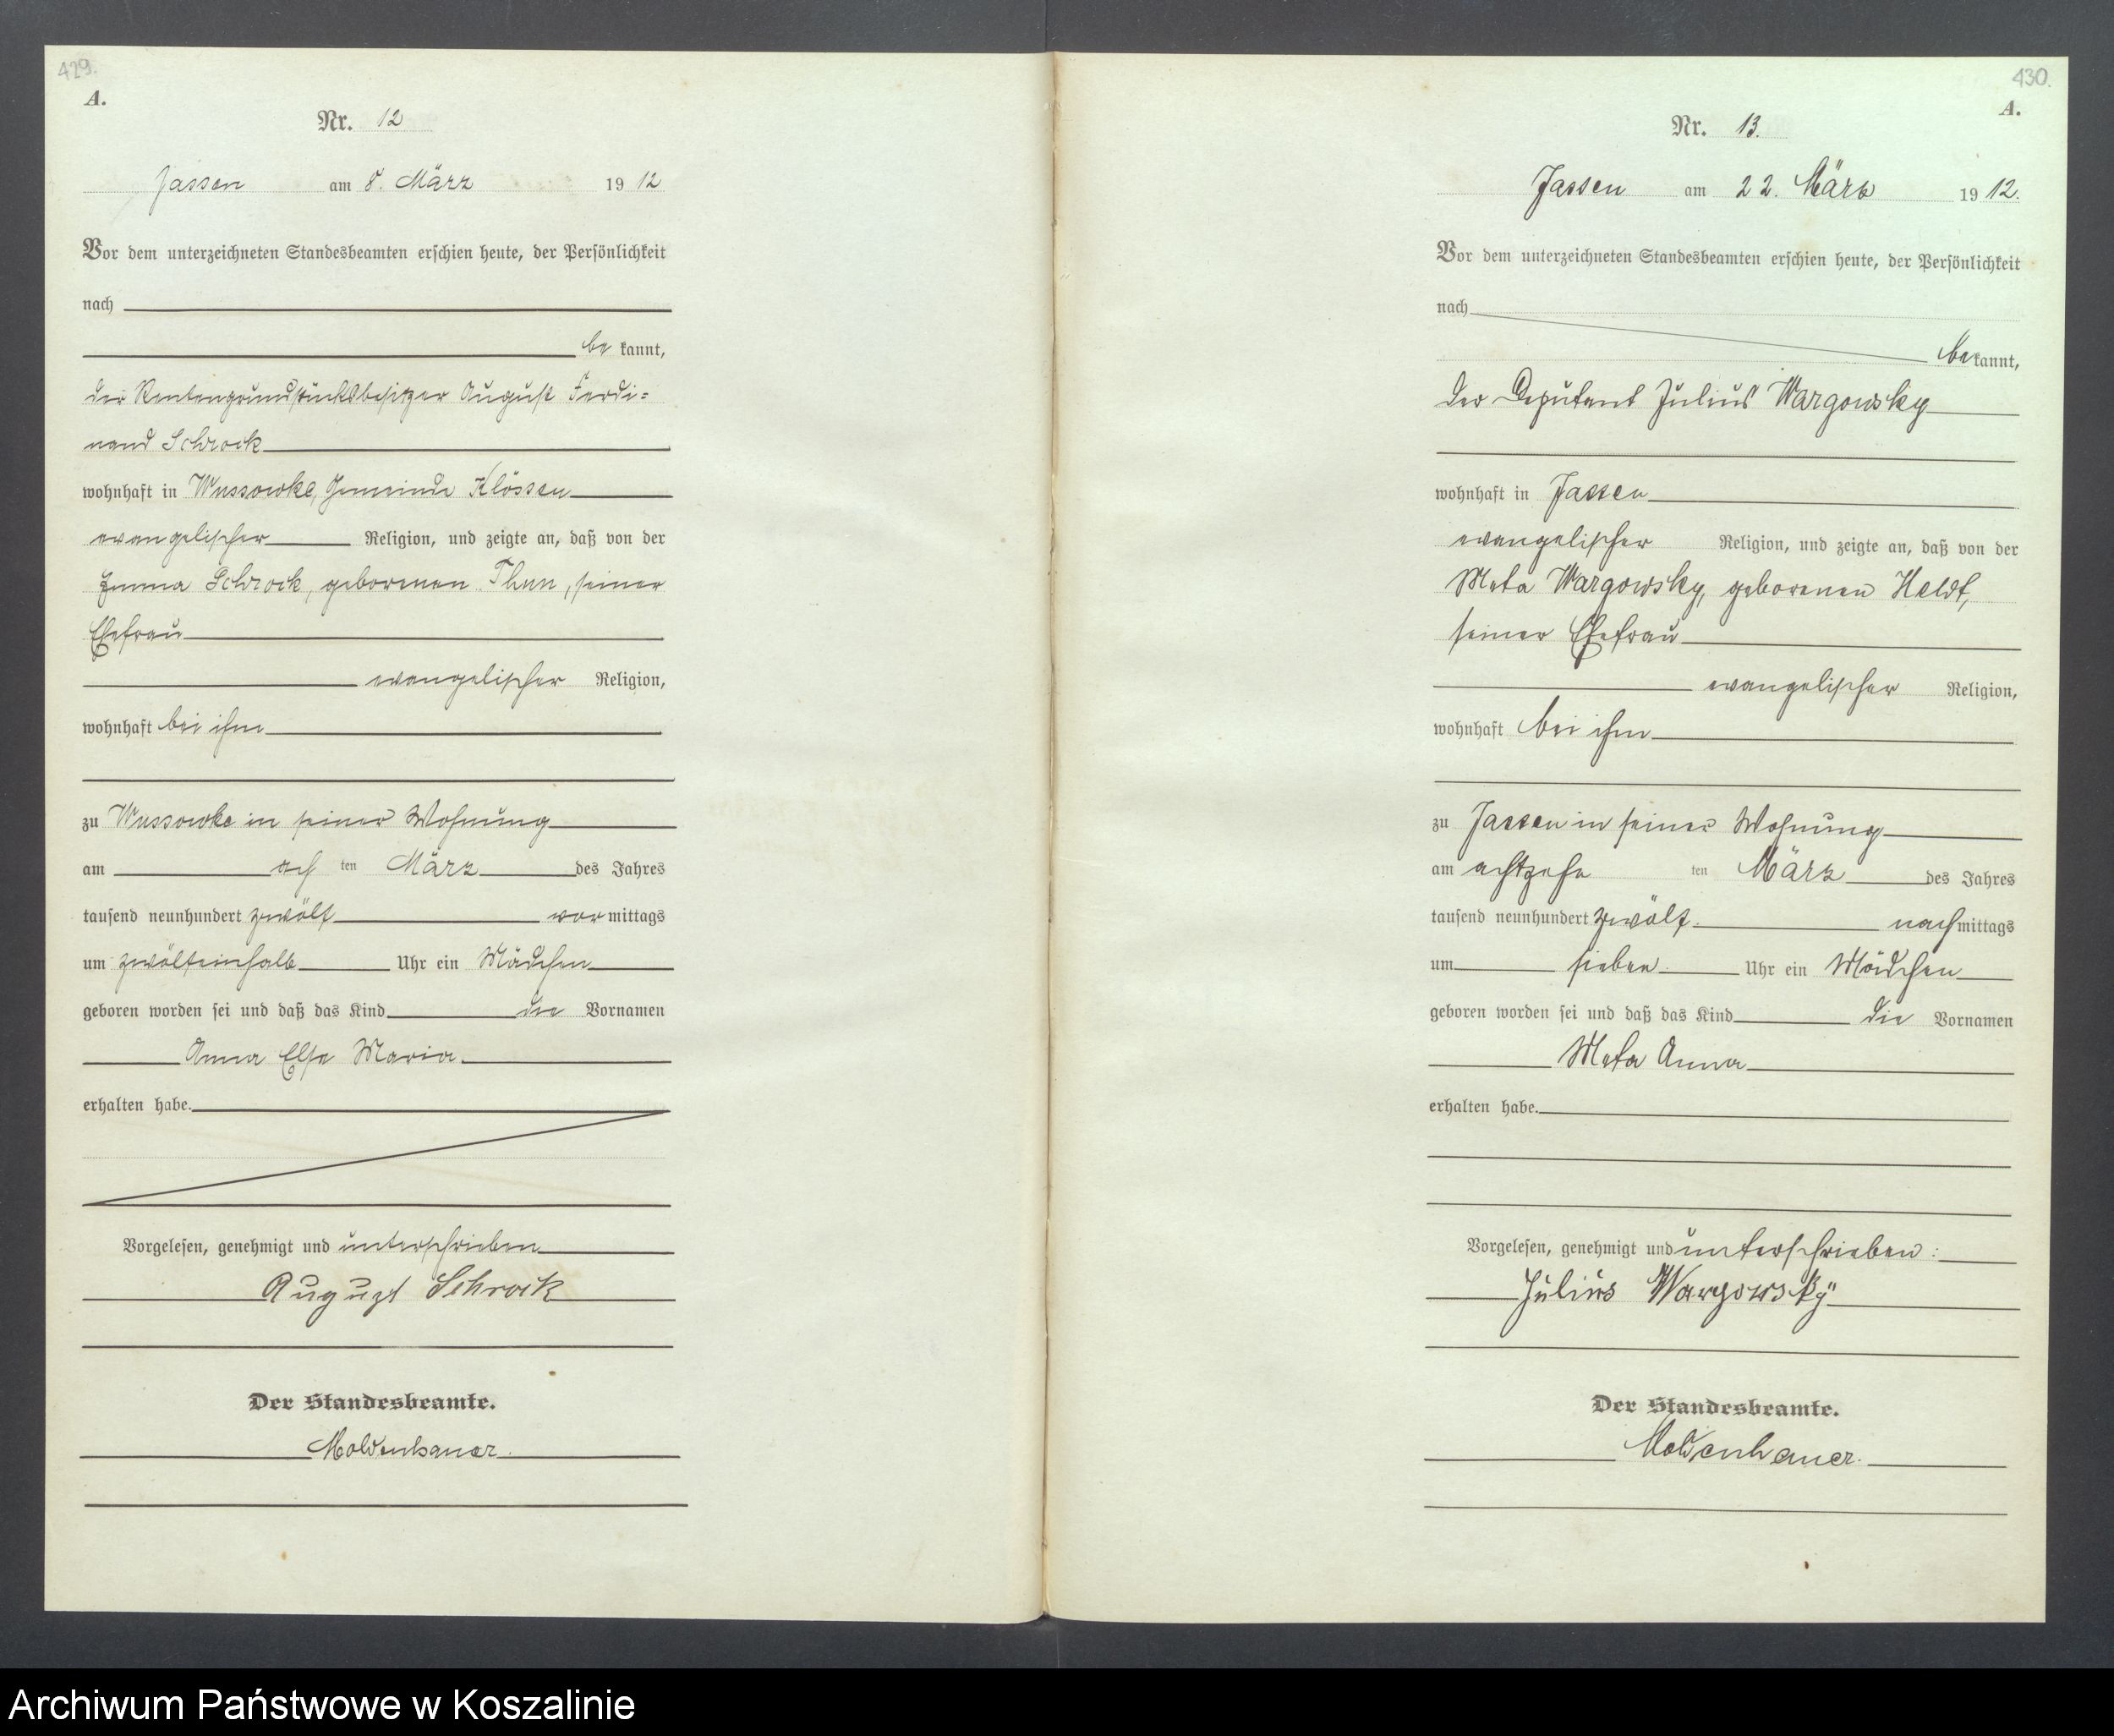 429.
A.
Nr. 12
Jassen am 8. März 1912
Vor dem unterzeichneten Standesbeamten erschien heute, der Persönlichkeit
nach
bekannt,
der Rentengrundstücksbesitzer August Ferdi=
nand Schrock
wohnhaft in Wussowke, Gemeinde Klössen
evangelischer Religion, und zeigte an, daß von der
Emma Schrock, geborenen Thun, seiner
Ehefrau
evangelischer Religion,
wohnhaft bei ihm
zu Wussowke in seiner Wohnung
am ach ten März des Jahres
tausend neunhundert zwölf vormittags
um zwölfeinhalb Uhr ein Mädchen
geboren worden sei und daß das Kind die Vornamen
Anna Else Maria
erhalten habe.
Vorgelesen, genehmigt und unterschrieben
August Schrock
Der Standesbeamte.
Moldenhauer.
430.
A.
Nr. 13.
Jassen am 22. März 1912.
Vor dem unterzeichneten Standesbeamten erschien heute, der Persönlichkeit
nach
bekannt,
der Deputant Julius Wargowsky
wohnhaft in Jassen
evangelischer Religion, und zeigte an, daß von der
Meta Wargowsky, geborenen Heldt,
seiner Ehefrau
evangelischer Religion,
wohnhaft bei ihm
zu Jassen in seiner Wohnung
am achtzehn ten März des Jahres
tausend neunhundert zwölf nachmittags
um sieben Uhr ein Mädchen
geboren worden sei und daß das Kind die Vornamen
Meta Anna
erhalten habe.
Vorgelesen, genehmigt und unterschrieben:
Julius Wargowsky
Der Standesbeamte.
Moldenhauer.
Archiwum Państwowe w Koszalinie